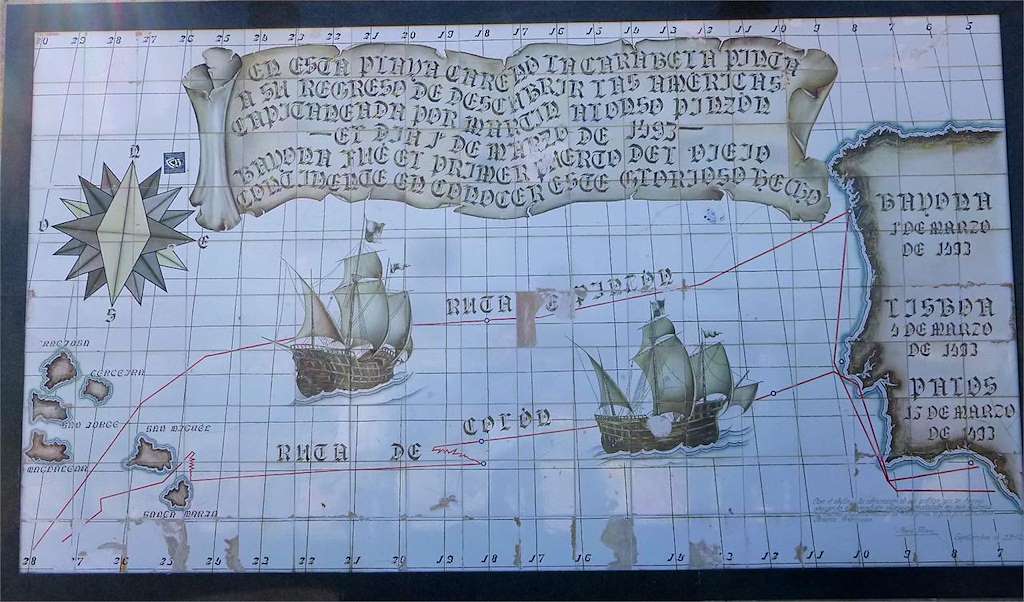 30 29 28 27 26 25 24 23 22 21 20 19 18 17 16 15 14 13 12 11 10 9 8 7 6 5
EN ESTA PLAYA CARENO LA CARABELA PINTA
A SU REGRESO DE DESCUBRIR LAS AMERICAS
CAPITANEADA POR MARTIN ALONSO PINZON
EL DIA 1º DE MARZO DE 1493
BAYONA FUE EL PRIMER PUERTO DEL VIEJO
CONTINENTE EN CONOCER ESTE GLORIOSO HECHO
N
O
E
S
BAYONA
1º DE MARZO
DE 1493
LISBOA
4 DE MARZO
DE 1493
PALOS
15 DE MARZO
DE 1493
RUTA DE PINZON
RUTA DE COLON
GRACIOSA
TERCEIRA
SAN JORGE
SAN MIGUEL
MAGDALENA
SANTA MARIA
28 27 26 25 24 23 22 21 20 19 18 17 16 14 13 12 11 10 9 8 7